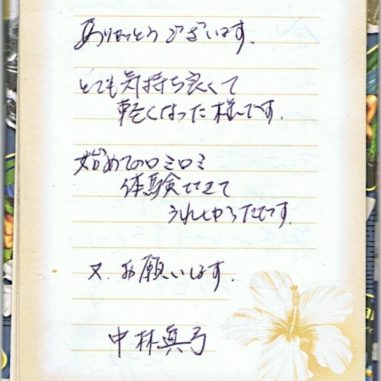 ありがとうございます。
とても気持ち良くて
軽くなった様です。
始めてのロミロミ
体験できて
うれしかったです。
又、お願いします。
中林真弓